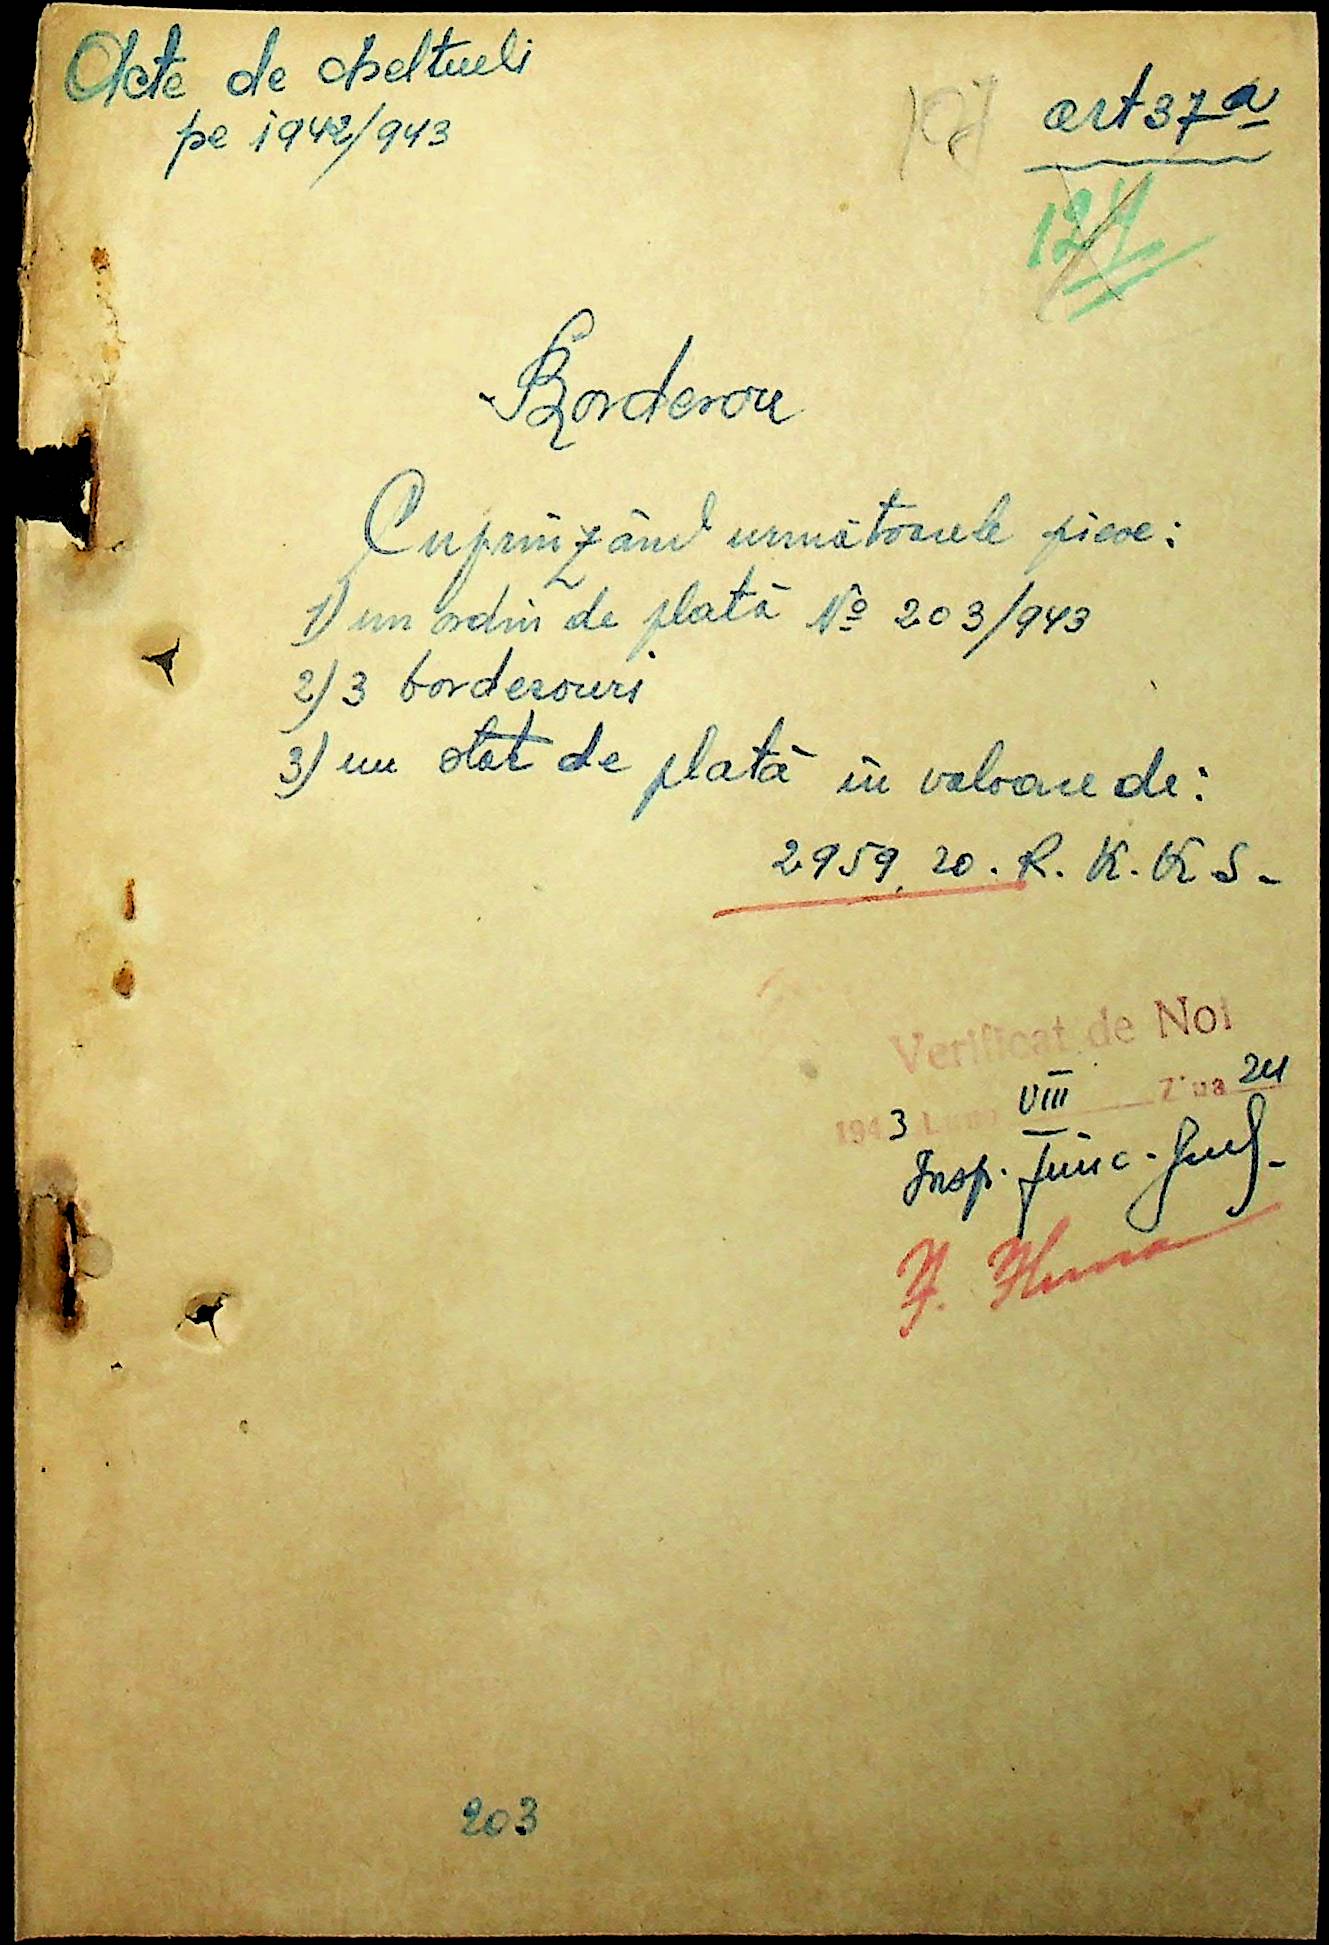 Acte de cheltueli
pe 1942/943
art 37 a
124
Borderou
Cuprinzând următoarele piese:
1) un ordin de plată № 203/943
2) 3 borderouri
3) un stat de plată în valoare de:
2959,20. R. K. K S.-
Verificat de Noi
1943 Luna VIII Ziua 24
Insp.
203